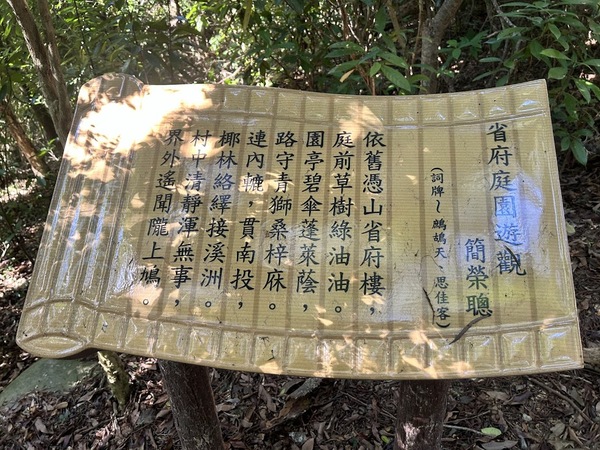 省府庭園遊觀
簡榮聰
(詞牌~鷓鴣天、思佳客)
依舊憑山省府樓,
庭前草樹綠油油。
園亭碧傘蓬萊蔭,
路守青獅桑梓庥。
連內轆,貫南投,
椰林絡繹接溪洲。
村中清靜渾無事,
界外遙聞隴上鳩。